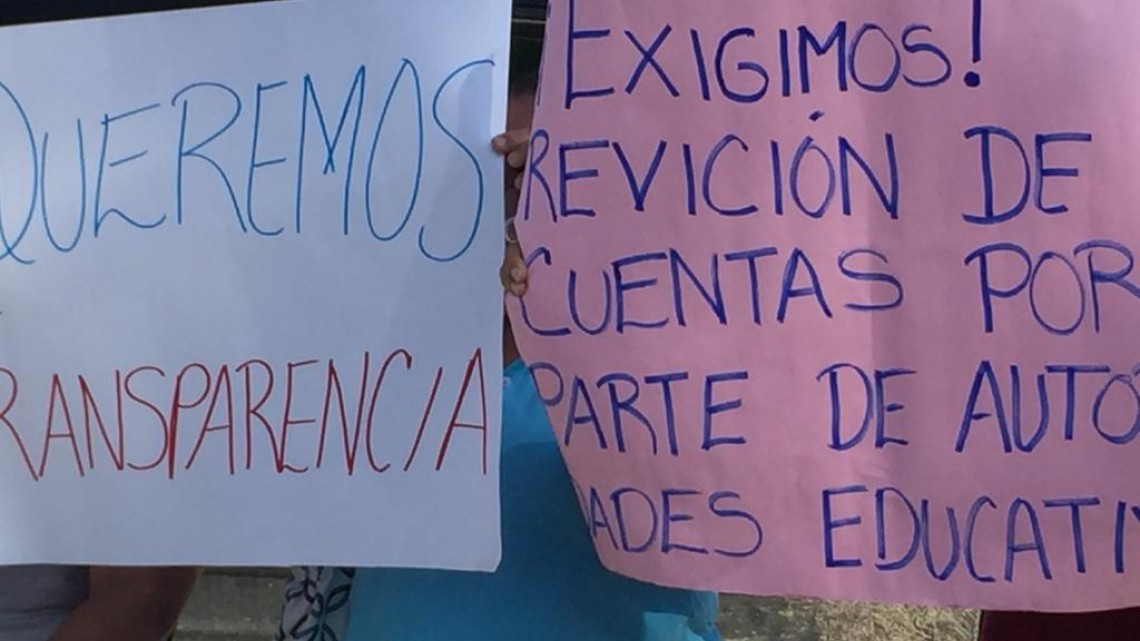 QUEREMOS
TRANSPARENCIA
¡EXIGIMOS!
REVICIÓN DE
CUENTAS POR
PARTE DE AUTÓ
DADES EDUCATIV